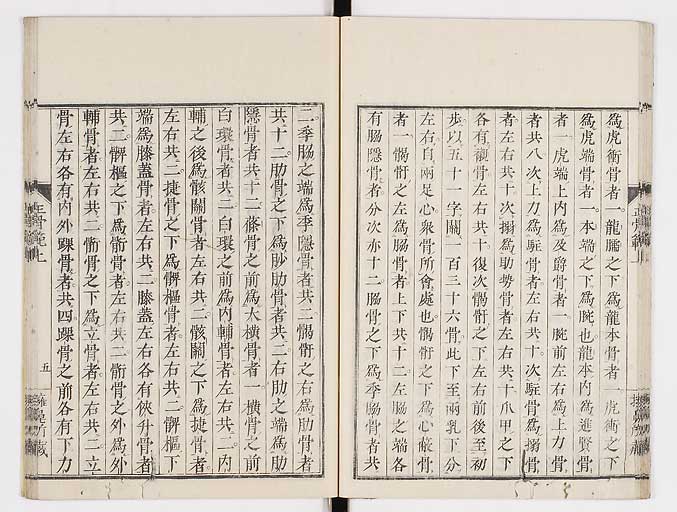 爲虎衝骨者一。龍臑之下爲龍本骨者一虎衝之下
爲虎端骨者一。本端之下爲腕也龍本內爲進賢骨
者一虎端上內爲及爵骨者一腕前左右爲上力骨
者共八次上力爲駐骨者左右共十次駐骨爲搦骨
者左右共十次搦爲助勢骨者左右共十爪甲之下
各有襯骨左右共十復次髑骬之下左右前後至初
步以五十一字關一百三十六骨此下至兩乳下分
左右自兩足心衆骨所會處也髑骬之下爲心蔽骨
者一髑骬之左爲腸骨者上下共十二左腸之端各
有腸隱骨者分次亦十二腸骨之下爲季腸骨者共
二季腸之端爲季隱骨者共二髑骬之右爲肋骨者
共十二肋骨之下爲䏚肋骨者共二右肋之端爲肋
隱骨者共十二蓨骨之前爲大橫骨者一橫骨之前
白環骨者共二白環之前爲內輔骨者左右共二內
輔之後爲骸關骨者左右共二骸關之下爲揵骨者
左右共二揵骨之下爲髀樞骨者左右共二髀樞下
端爲膝蓋骨者左右共二膝蓋左右各有俠升骨者
共二髀樞之下爲䯒骨者左右共二䯒骨之外爲外
輔骨者左右共二䯒骨之下爲立骨者左右共二立
骨左右各有內外踝骨者共四踝骨之前各有下力
五